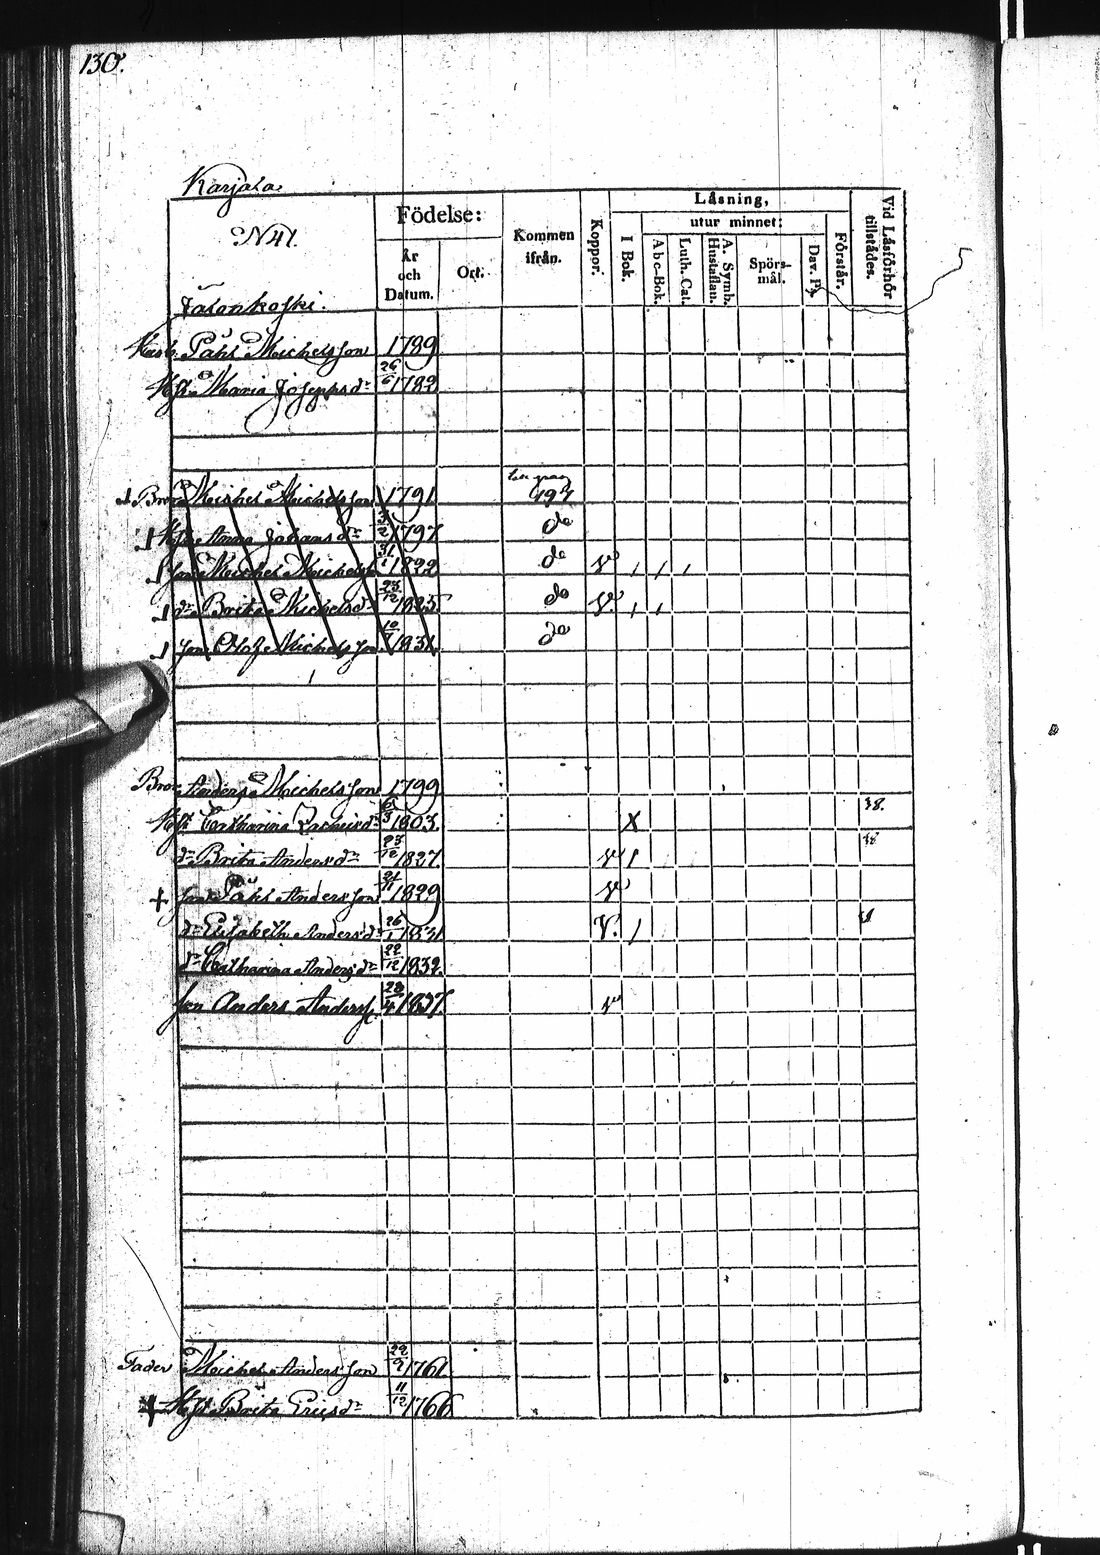 130.
Karjala.
N 41.
Födelse:
År och Datum.
Ort.
Kommen ifrån.
Koppor.
Läsning,
I Bok.
utur minnet:
Abc-Bok.
Luth. Cat.
A. Symb. Hustaflan.
Spörsmål.
Dav. Ps.
Förstår.
Vid Läsförhör tillstädes.
Påhl Michelsson 1789
Hst. Maria Josephsdr 26/6 1782
Bror Michel Michelsson 1791 197
Hst. Anna Johansdr 1797 do
Son Michel Michelss. 31/1 1822 do v
dr Brita Michelsdr 23/12 1825 do v
son Olof Michelsson 10/ 1831 do
Bror Anders Michelsson 1799
Hst Catharina 1803. X 38.
dr Brita Andersdr 23/12 1827. v 38
+ son Påhl Andersson 21/11 1829 v
dr Elisabeth Andersdr 26/1 1831 v.
dr Catharina Andersdr 22/12 1832.
Son Anders Anderss. 28/4 1837. v
Fader Michel Andersson 29/9 1761
+ Hst Brita Ericsdr 11/12 1766